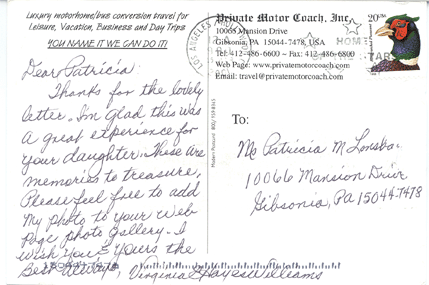 Luxury motorhome/bus conversion travel for
Leisure, Vacation, Business and Day Trips
YOU NAME IT WE CAN DO IT!
Dear Patricia
Thanks for the lovely
letter. I'm glad this was
a great experience for
your daughter. These are
memories to treasure.
Please feel free to add
my photo to your web
page photo gallery. I
wish you & yours the
Best Always, Virginia Hayes Williams
Private Motor Coach, Inc.
10065 Mansion Drive
Gibsonia, PA 15044-7478, USA
Tel: 412-486-6600 - Fax: 412-486-6800
Web Page: www.privatemotorcoach.com
Email: travel@privatemotorcoach.com
LOS ANGELES
20
HOME
To:
Ms Patricia M
10066 Mansion Drive
Gibsonia, PA 15044-7478